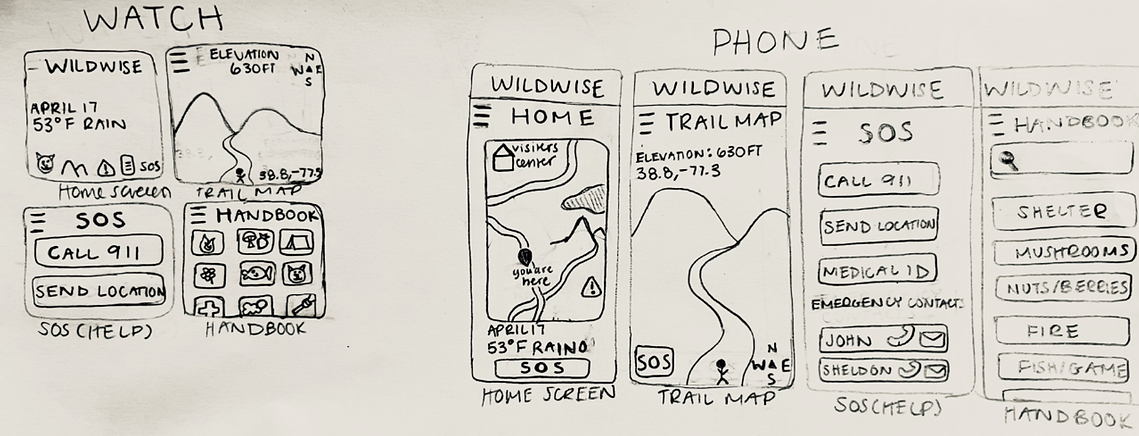 WATCH
WILDWISE
APRIL 17
53°F RAIN
SOS
Home Screen
ELEVATION
630FT
N
W E
S
38.8,-77.3
TRAIL MAP
SOS
CALL 911
SEND LOCATION
SOS(HELP)
HANDBOOK
HANDBOOK
PHONE
WILDWISE
HOME
visiters
center
you are
here
APRIL 17
53°F RAINO
SOS
HOME SCREEN
WILDWISE
TRAIL MAP
ELEVATION: 630FT
38.8,-77.3
SOS
N
W E
S
TRAIL MAP
WILDWISE
SOS
CALL 911
SEND LOCATION
MEDICAL ID
EMERGENCY CONTACT:
JOHN
SHELDON
SOS(HELP)
WILDWISE
HANDBOOK
SHELTER
MUSHROOMS
NUTS/BERRIES
FIRE
FISH/GAME
HANDBOOK